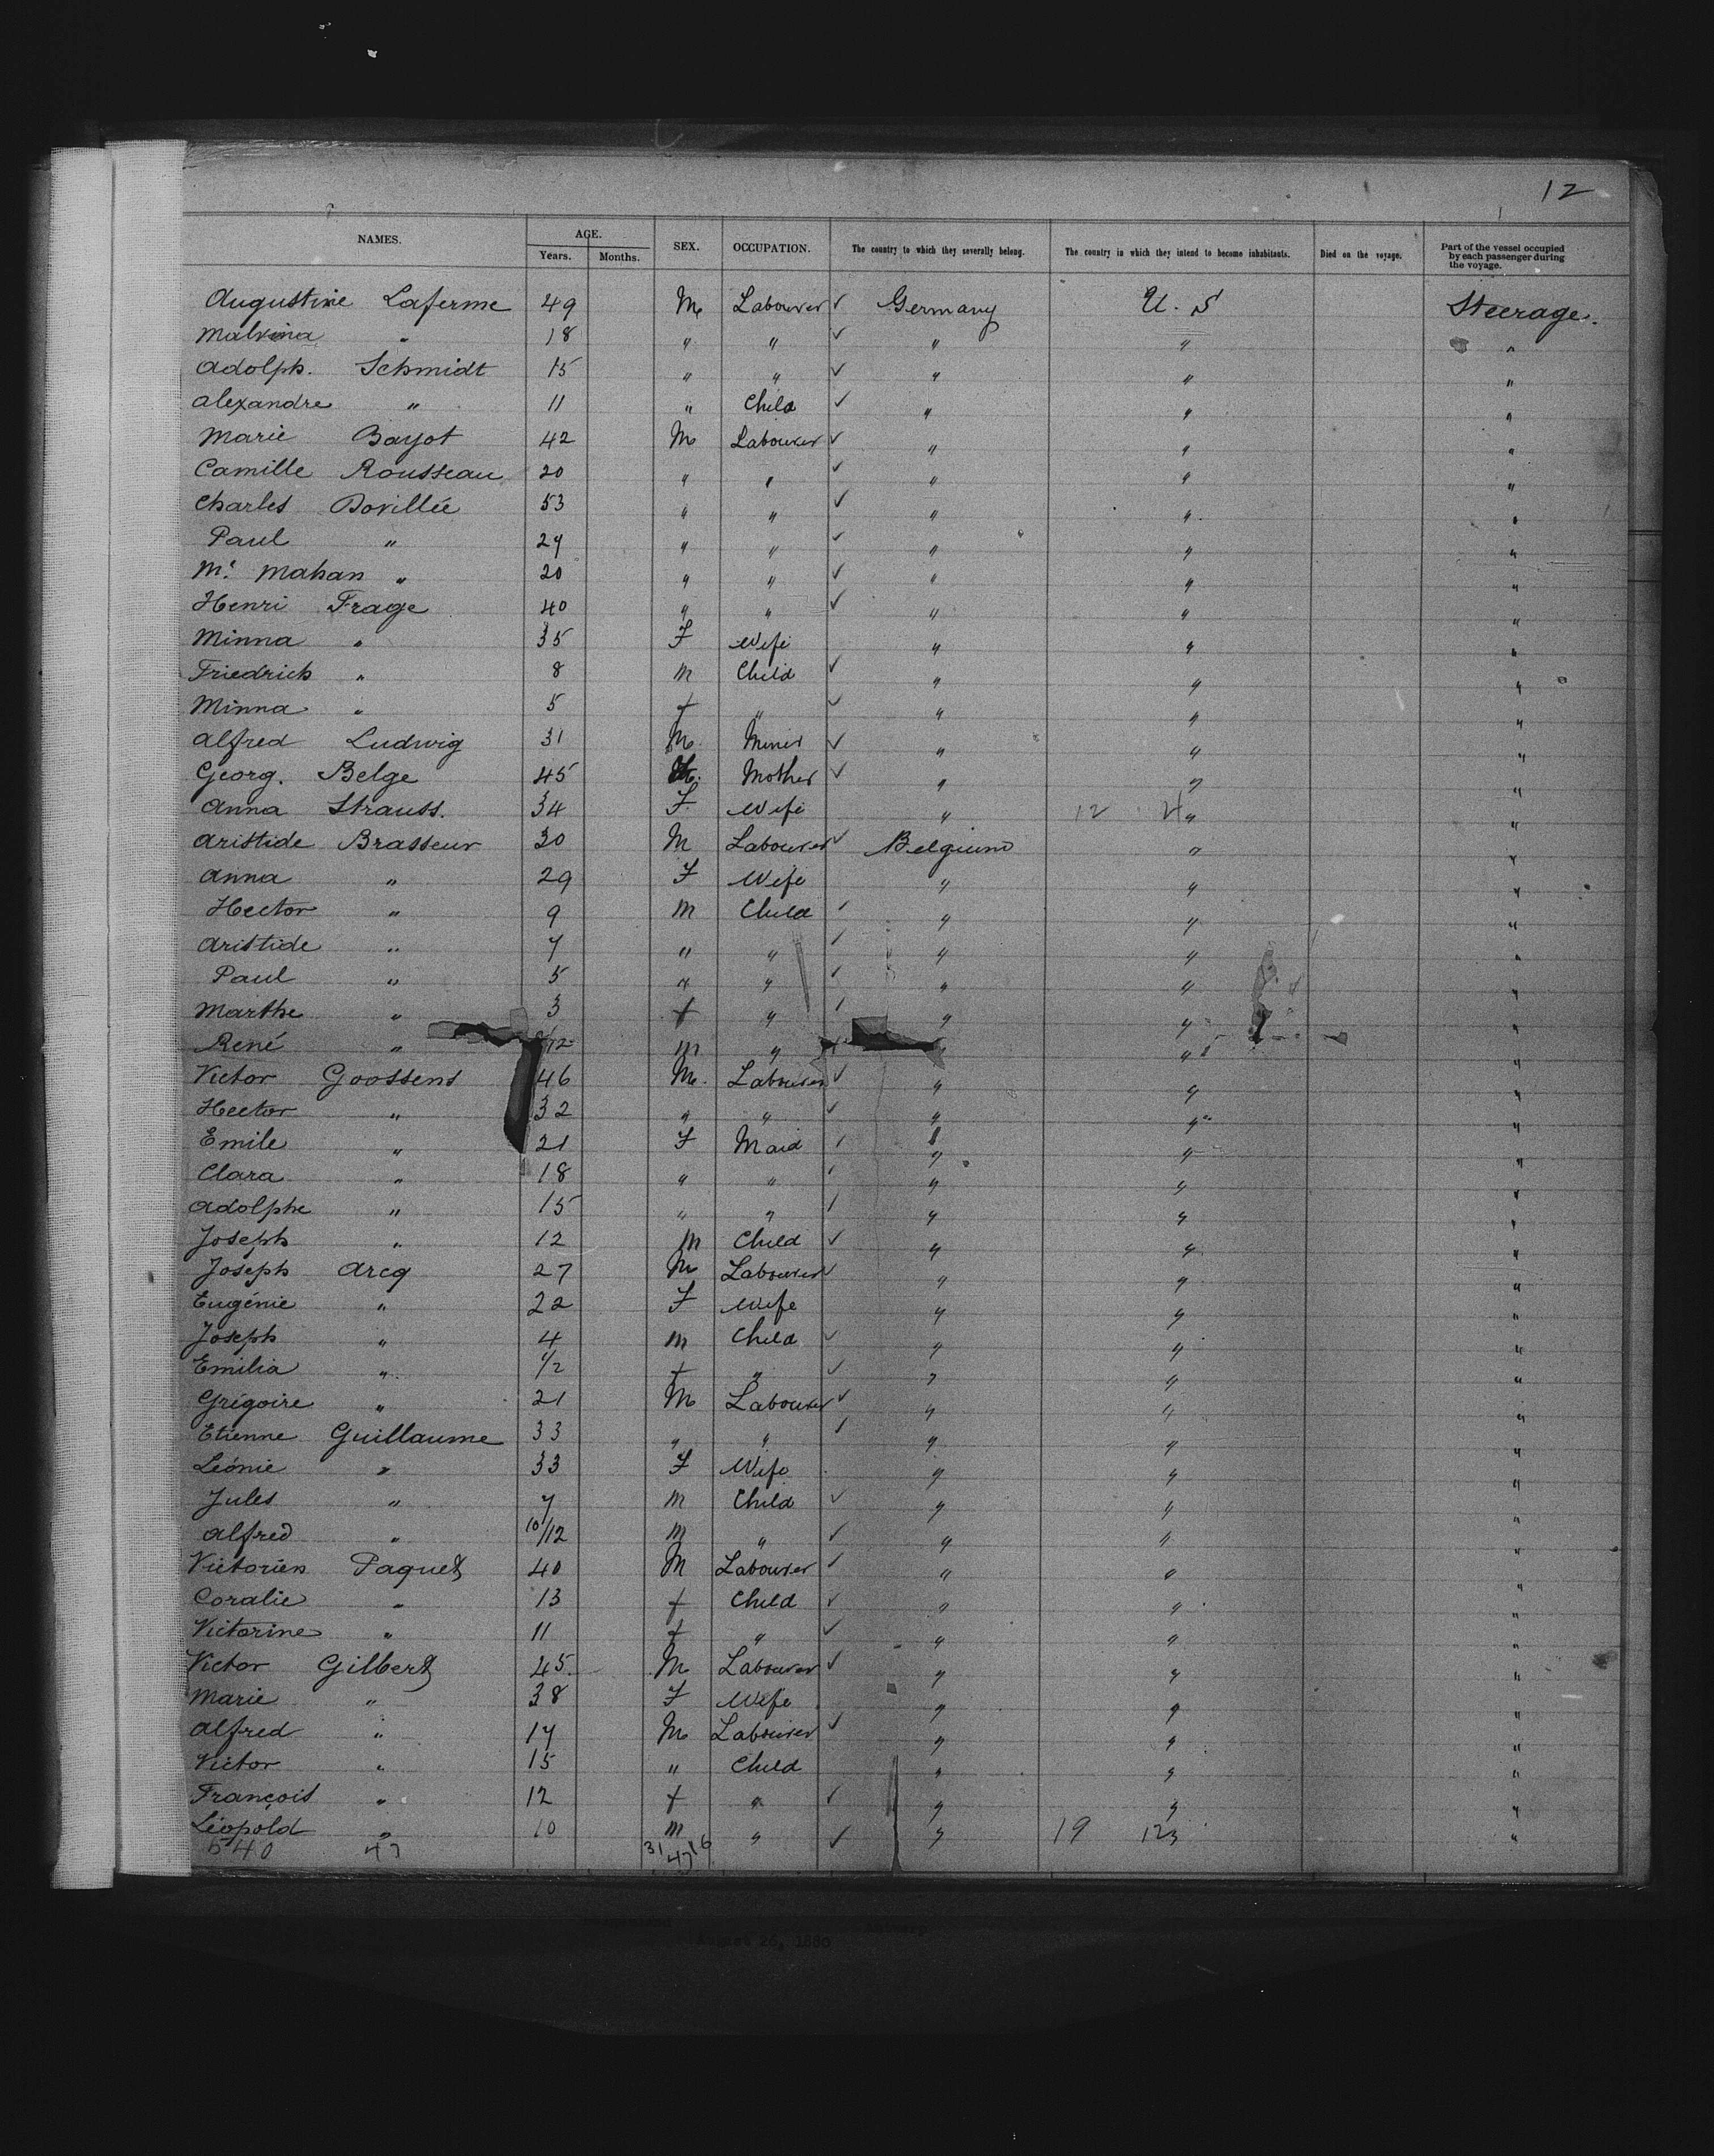 12
NAMES. AGE. Years. Months. SEX. OCCUPATION. The country to which they severally belong. The country in which they intend to become inhabitants. Died on the voyage. Part of the vessel occupied by each passenger during the voyage.
Augustine Laferme 49 M Labourer ✓ Germany U. S Steerage.
Malvina " 18 " " ✓ " " "
Adolph. Schmidt 15 " " ✓ " " "
Alexandre " 11 " Child ✓ " " "
Marie Bayot 42 M Labourer ✓ " " "
Camille Rousseau 20 " " ✓ " " "
Charles Dovillée 53 " " ✓ " " "
Paul " 24 " " ✓ " " "
Mr. Mahan " 20 " " ✓ " " "
Henri Frage 40 " " ✓ " " "
Minna " 35 F Wife " " "
Friedrich " 8 m Child ✓ " " "
Minna " 5 f " ✓ " " "
Alfred Ludwig 31 M Miner ✓ " " "
Georg. Belge 45 Mother ✓ " " "
Anna Strauss. 34 F Wife " 12 4 " "
Aristide Brasseur 30 M Labourer ✓ Belgium " "
Anna " 29 F Wife " " "
Hector " 9 m Child ✓ " " "
Aristide " 7 " " ✓ " " "
Paul " 5 " " ✓ " " "
Marthe " 3 f " ✓ " " "
René " /12 m " ✓ " " "
Victor Goossens 46 M. Labourer ✓ " " "
Hector " 32 " " ✓ " " "
Emile " 21 F Maid ✓ " " "
Clara " 18 " " ✓ " " "
Adolphe " 15 " " ✓ " " "
Joseph " 12 m Child ✓ " " "
Joseph Arcq 27 M Labourer ✓ " " "
Eugénie " 22 F Wife " " "
Joseph " 4 m Child ✓ " " "
Emilia " 1/2 f " ✓ " " "
Grégoire " 21 M Labourer ✓ " " "
Etienne Guillaume 33 " " ✓ " " "
Léonie " 33 F Wife " " "
Jules " 7 m Child ✓ " " "
Alfred " 10/12 m " ✓ " " "
Victorien Paquet 40 M Labourer ✓ " " "
Coralie " 13 f Child ✓ " " "
Victorine " 11 f " ✓ " " "
Victor Gilbert 45. M Labourer ✓ " " "
Marie " 38 F Wife " " "
Alfred " 17 M Labourer ✓ " " "
Victor " 15 " Child " " "
François " 12 f " ✓ " " "
Léopold " 10 m " ✓ " 19 123 "
540 47 31 16
47
August 26, 1880